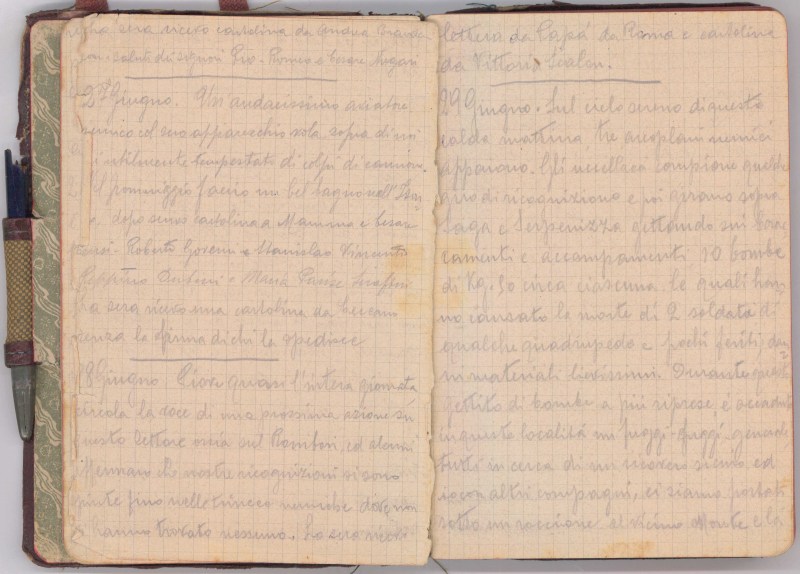 sera ricevo cartolina da Andrea
saluti di signori Pio - Romeo e Cesare
27 Giugno. Un audacissimo aviatore
nemico col suo apparecchio vola sopra di noi
inutilmente tempestato di colpi di cannone.
Il pomeriggio faccio un bel bagno nell'
dopo scrivo cartolina a Mamma e
Roberto e Stanislao Vincenti
Peppino - Maria
sera ricevo una cartolina da
senza la firma di chi la spedisce
28 Giugno Piove quasi l'intera giornata
circola la voce di una prossima azione su
questo settore ossia sul Rombon, ed alcuni
affermano che nostre ricognizioni si sono
spinte fino nelle trincee nemiche dove non
hanno trovato nessuno. La sera ricevo
lettera da Papà da Roma e cartolina
da Vittorio Scialon.
29 Giugno. Sul cielo sereno di questa
calda mattina, tre aeroplani nemici
appaiono. Gli uccellacci compiono qualche
giro di ricognizione e poi girano sopra
Saga e Serpenizza gettando sui
camenti e accampamenti 10 bombe
di Kg. 50 circa ciascuna le quali han
no causato la morte di 2 soldati di
qualche quadrupede e pochi feriti dan
ni materiali lievissimi. Durante questo
gettito di bombe a più riprese, è accaduto
in queste località un fuggi fuggi generale
tutti in cerca di un ricovero sicuro, ed
io con altri compagni, ci siamo portati
sotto un roccione al vicino Monte e là